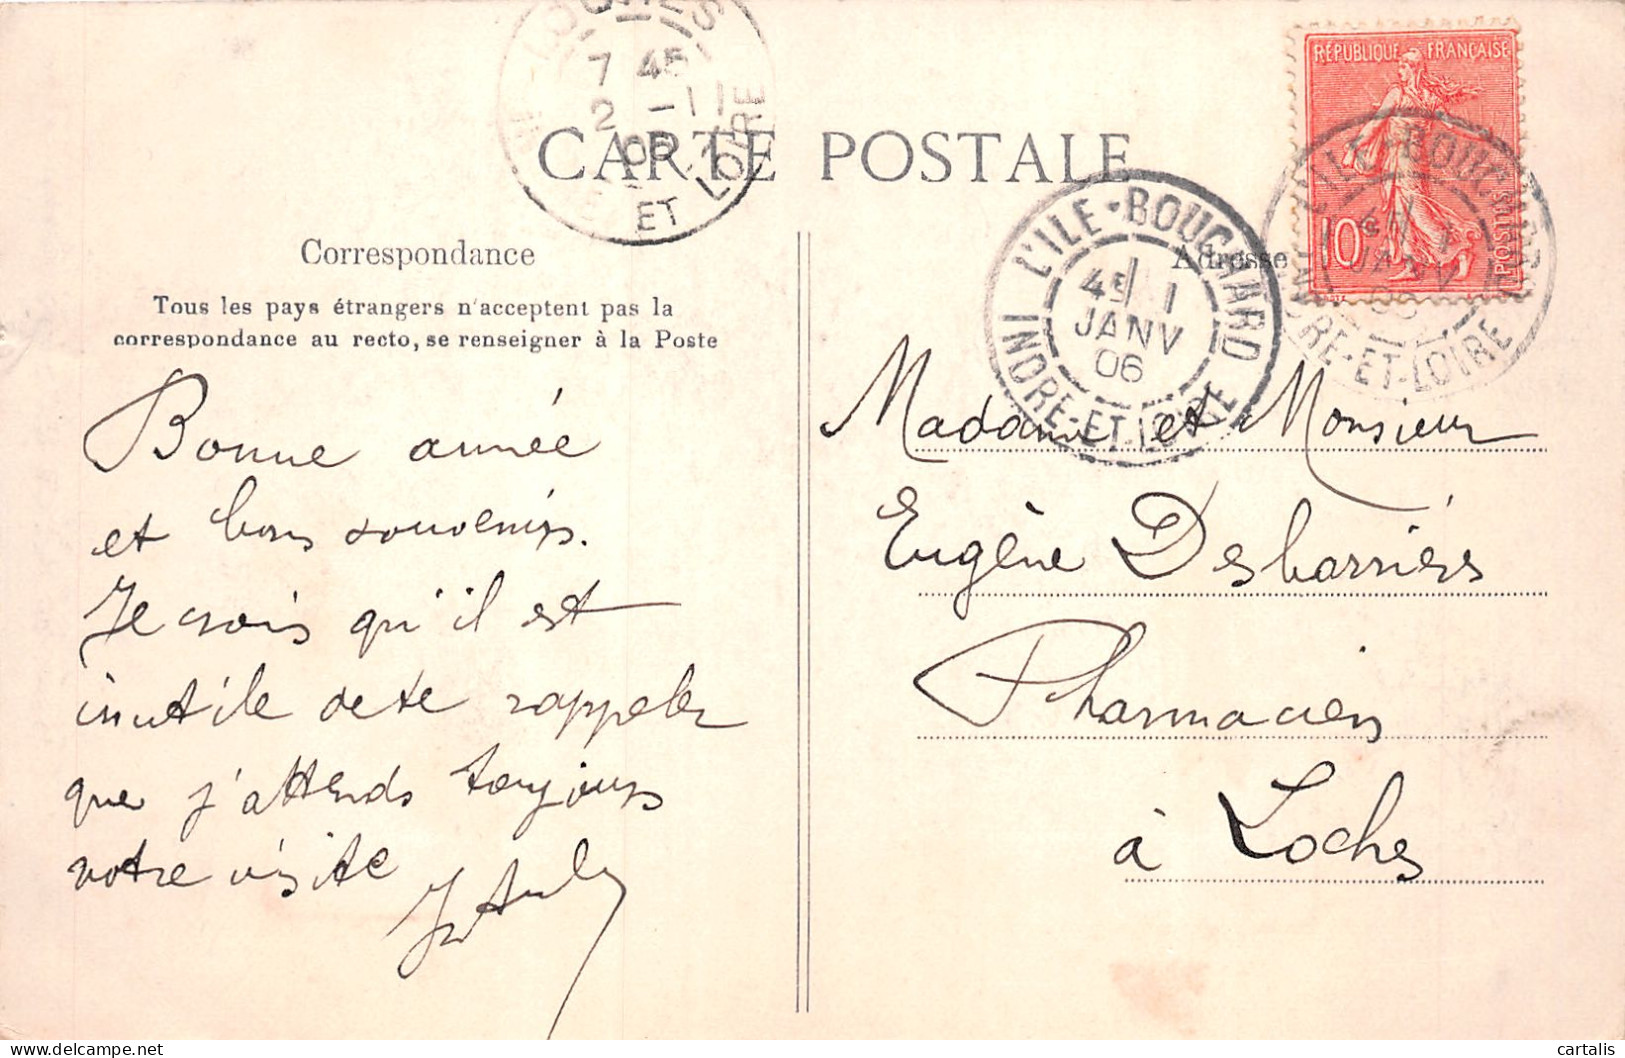 CARTE POSTALE
Correspondance
Tous les pays étrangers n'acceptent pas la
correspondance au recto, se renseigner à la Poste
Bonne année
et bons souvenirs.
Je crois qu'il est
inutile de te rappeler
que j'attends toujours
votre visite
LOCHES
7 45
2 -1
06
ET LOIRE
L'ILE-BOUCHARD
45 1
JANV
06
INDRE-ET-LOIRE
RÉPUBLIQUE FRANÇAISE
10
POSTES
L'ILE-BOUCHARD
45 1
JANV
06
INDRE-ET-LOIRE
Adresse
Madame et Monsieur
Eugène Desbarriers
Pharmacien
à Loches
cartalis